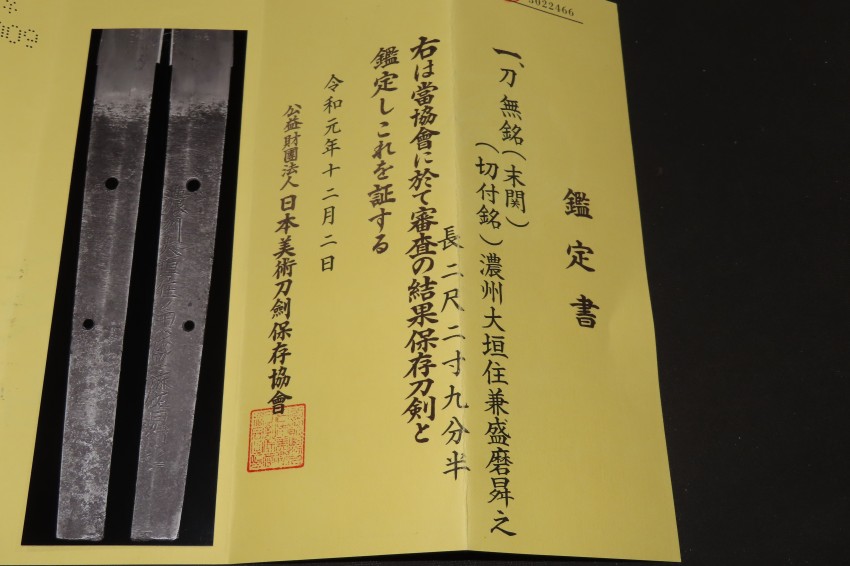 3022466
鑑定書
一、刀 無銘(末関)
(切付銘)濃州大垣住兼盛磨舜之
長 二尺二寸九分半
右は當協會に於て審査の結果保存刀剣と
鑑定しこれを証する
令和元年十二月二日
公益財團法人 日本美術刀劍保存協會